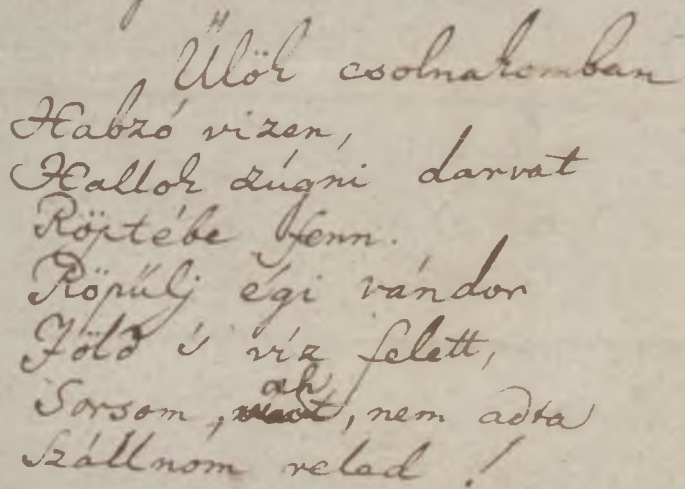 Űlök csolnakomban
Habzó vizen,
Hallok zúgni darvat
Röptébe fenn.
Röpűlj égi vándor
Föld 's víz felett,
Sorsom, ah, nem adta
Szállnom veled!